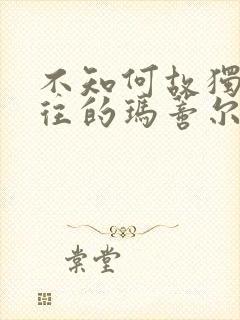 不知何故獨
往的瑪蒂尔
棠堂